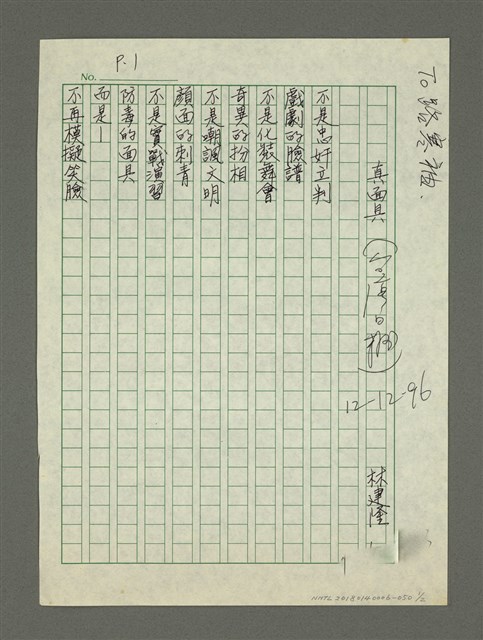 P.1
No.
To 路寒袖.
真面具
(台灣日報)
12-12-96
林建隆
不是忠奸立判
戲劇的臉譜
不是化裝舞會
奇異的扮相
不是嘲諷文明
顏面的刺青
不是實戰演習
防毒的面具
而是—
不再模擬笑臉
NMTL20180140006-050 1/2